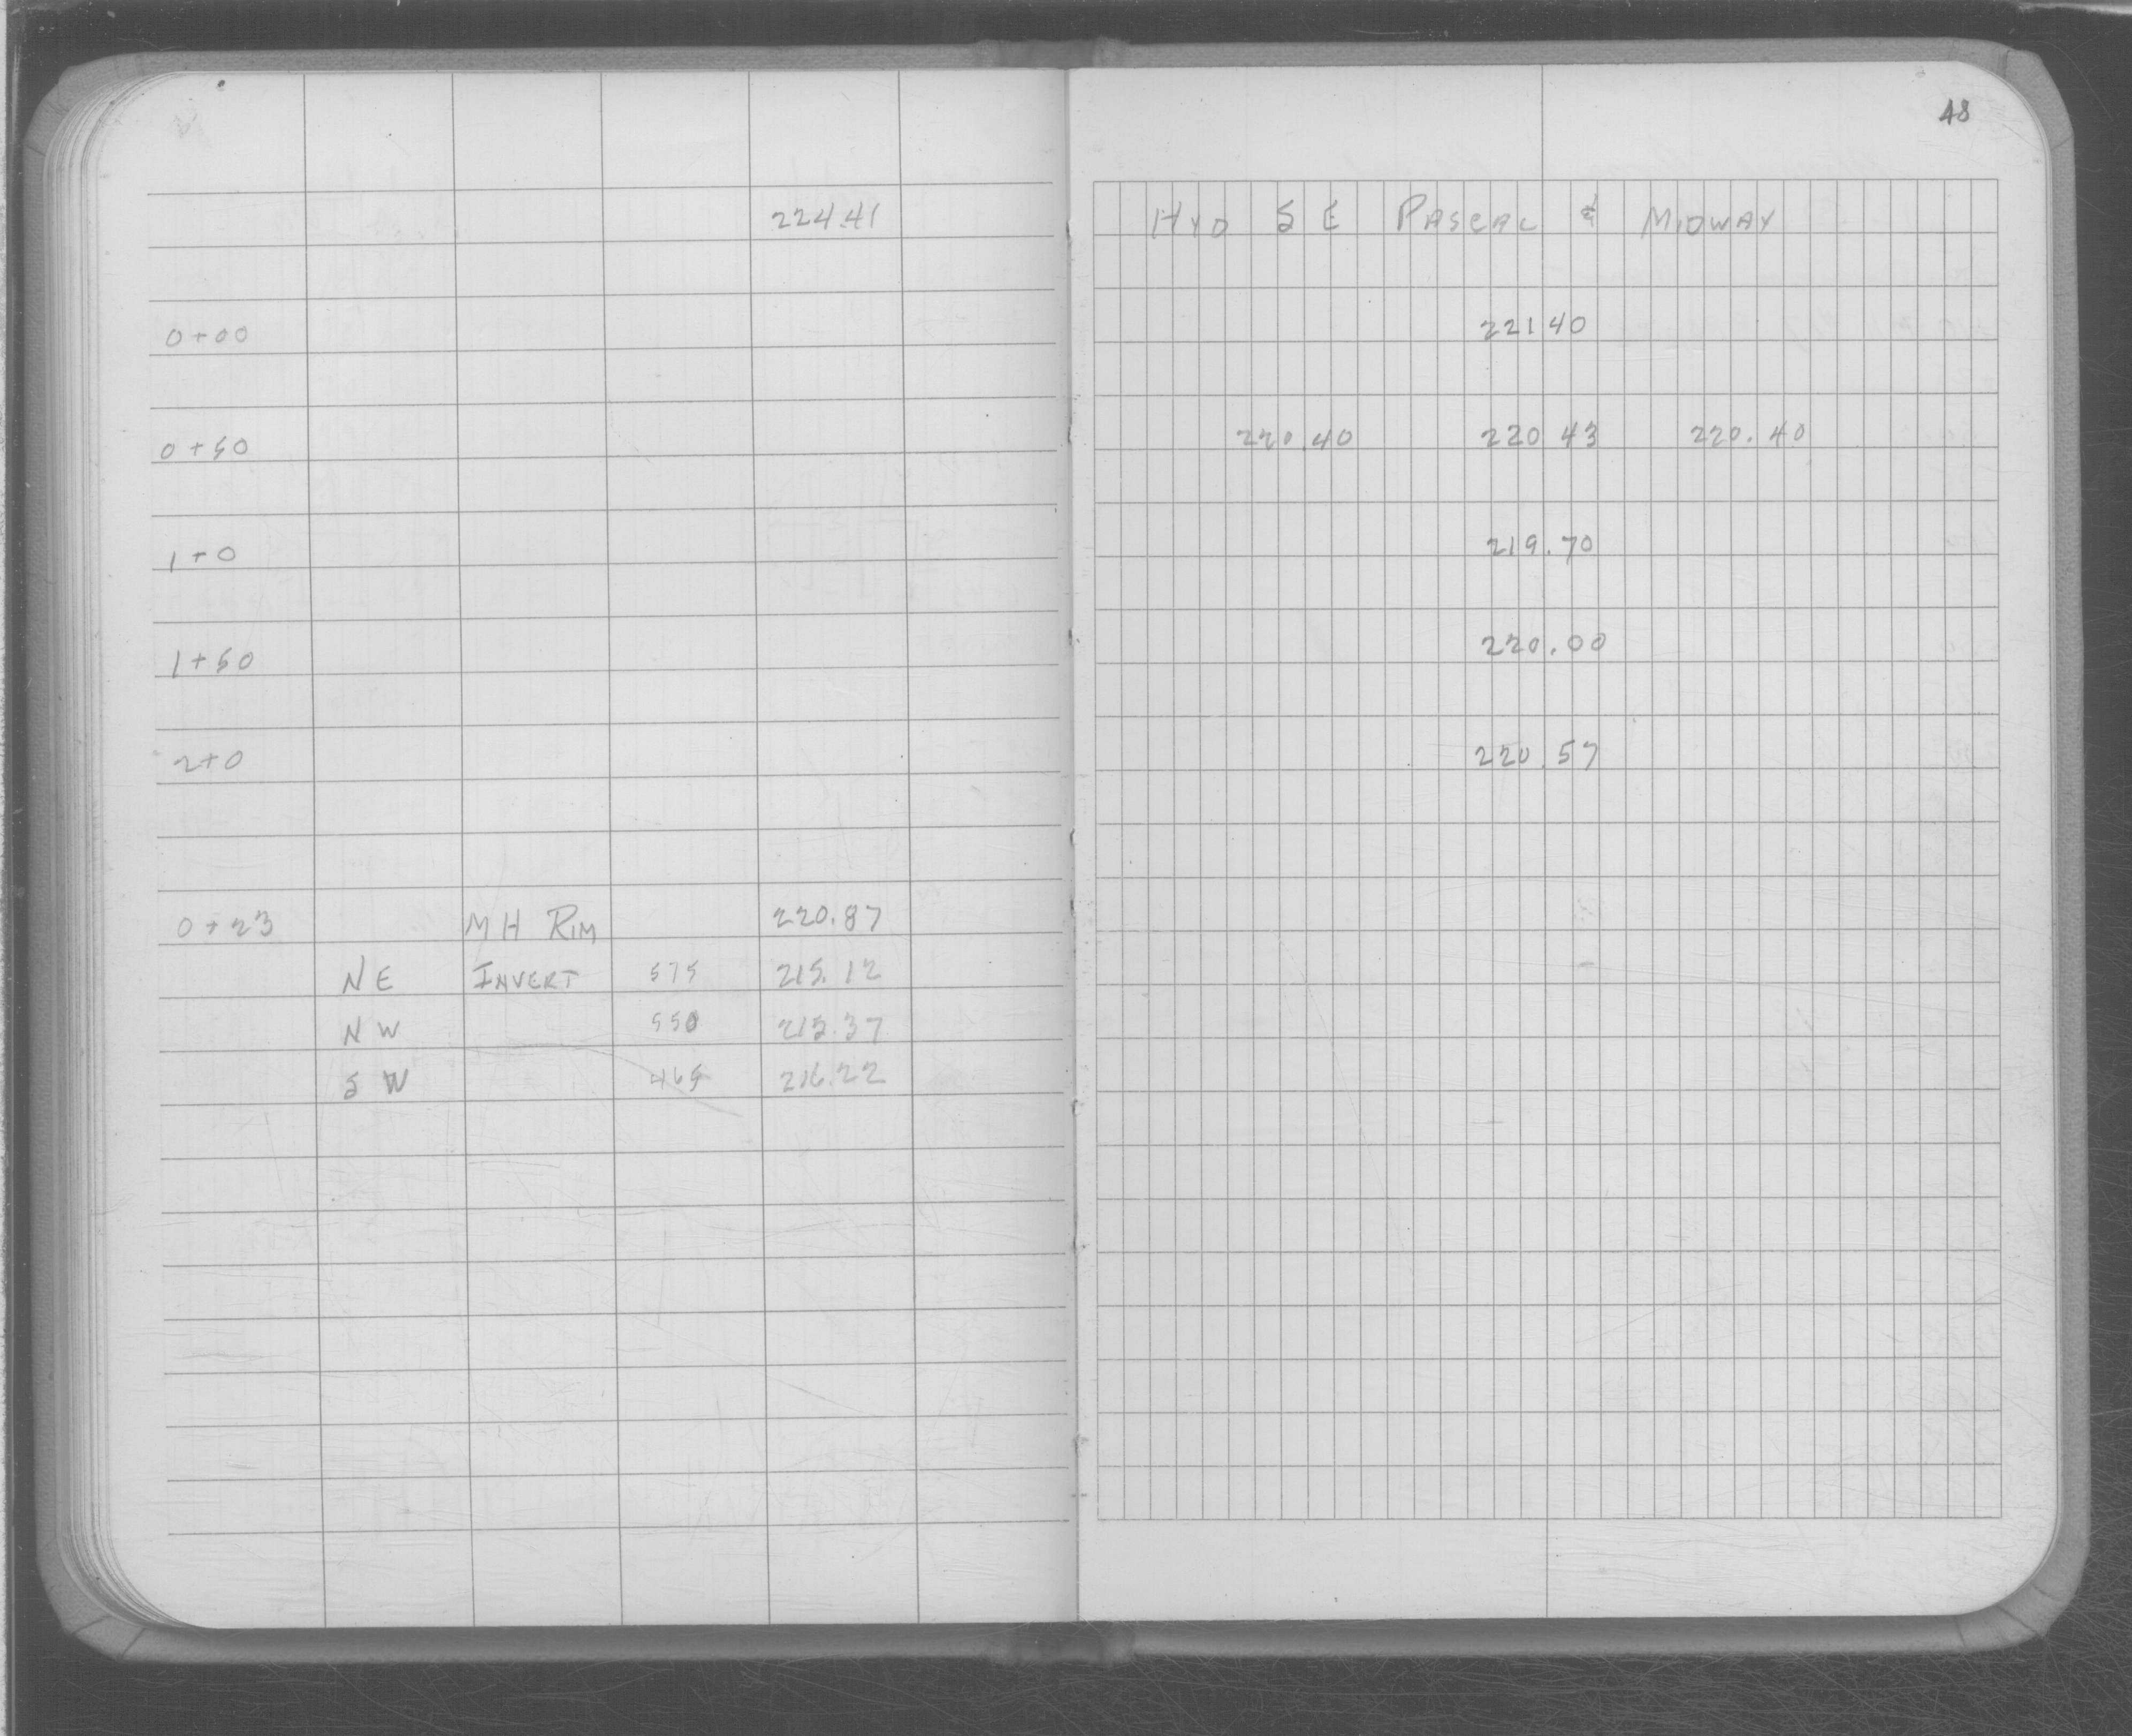 48
224.41 HYD S E PASCAL & MIDWAY
0+00 221 40
0+50 220.40 220 43 220.40
1+0 219.70
1+50 220.00
2+0 220.57
0+23 MH RIM 220.87
NE INVERT 575 215.12
NW 550 215.37
SW 465 216.22